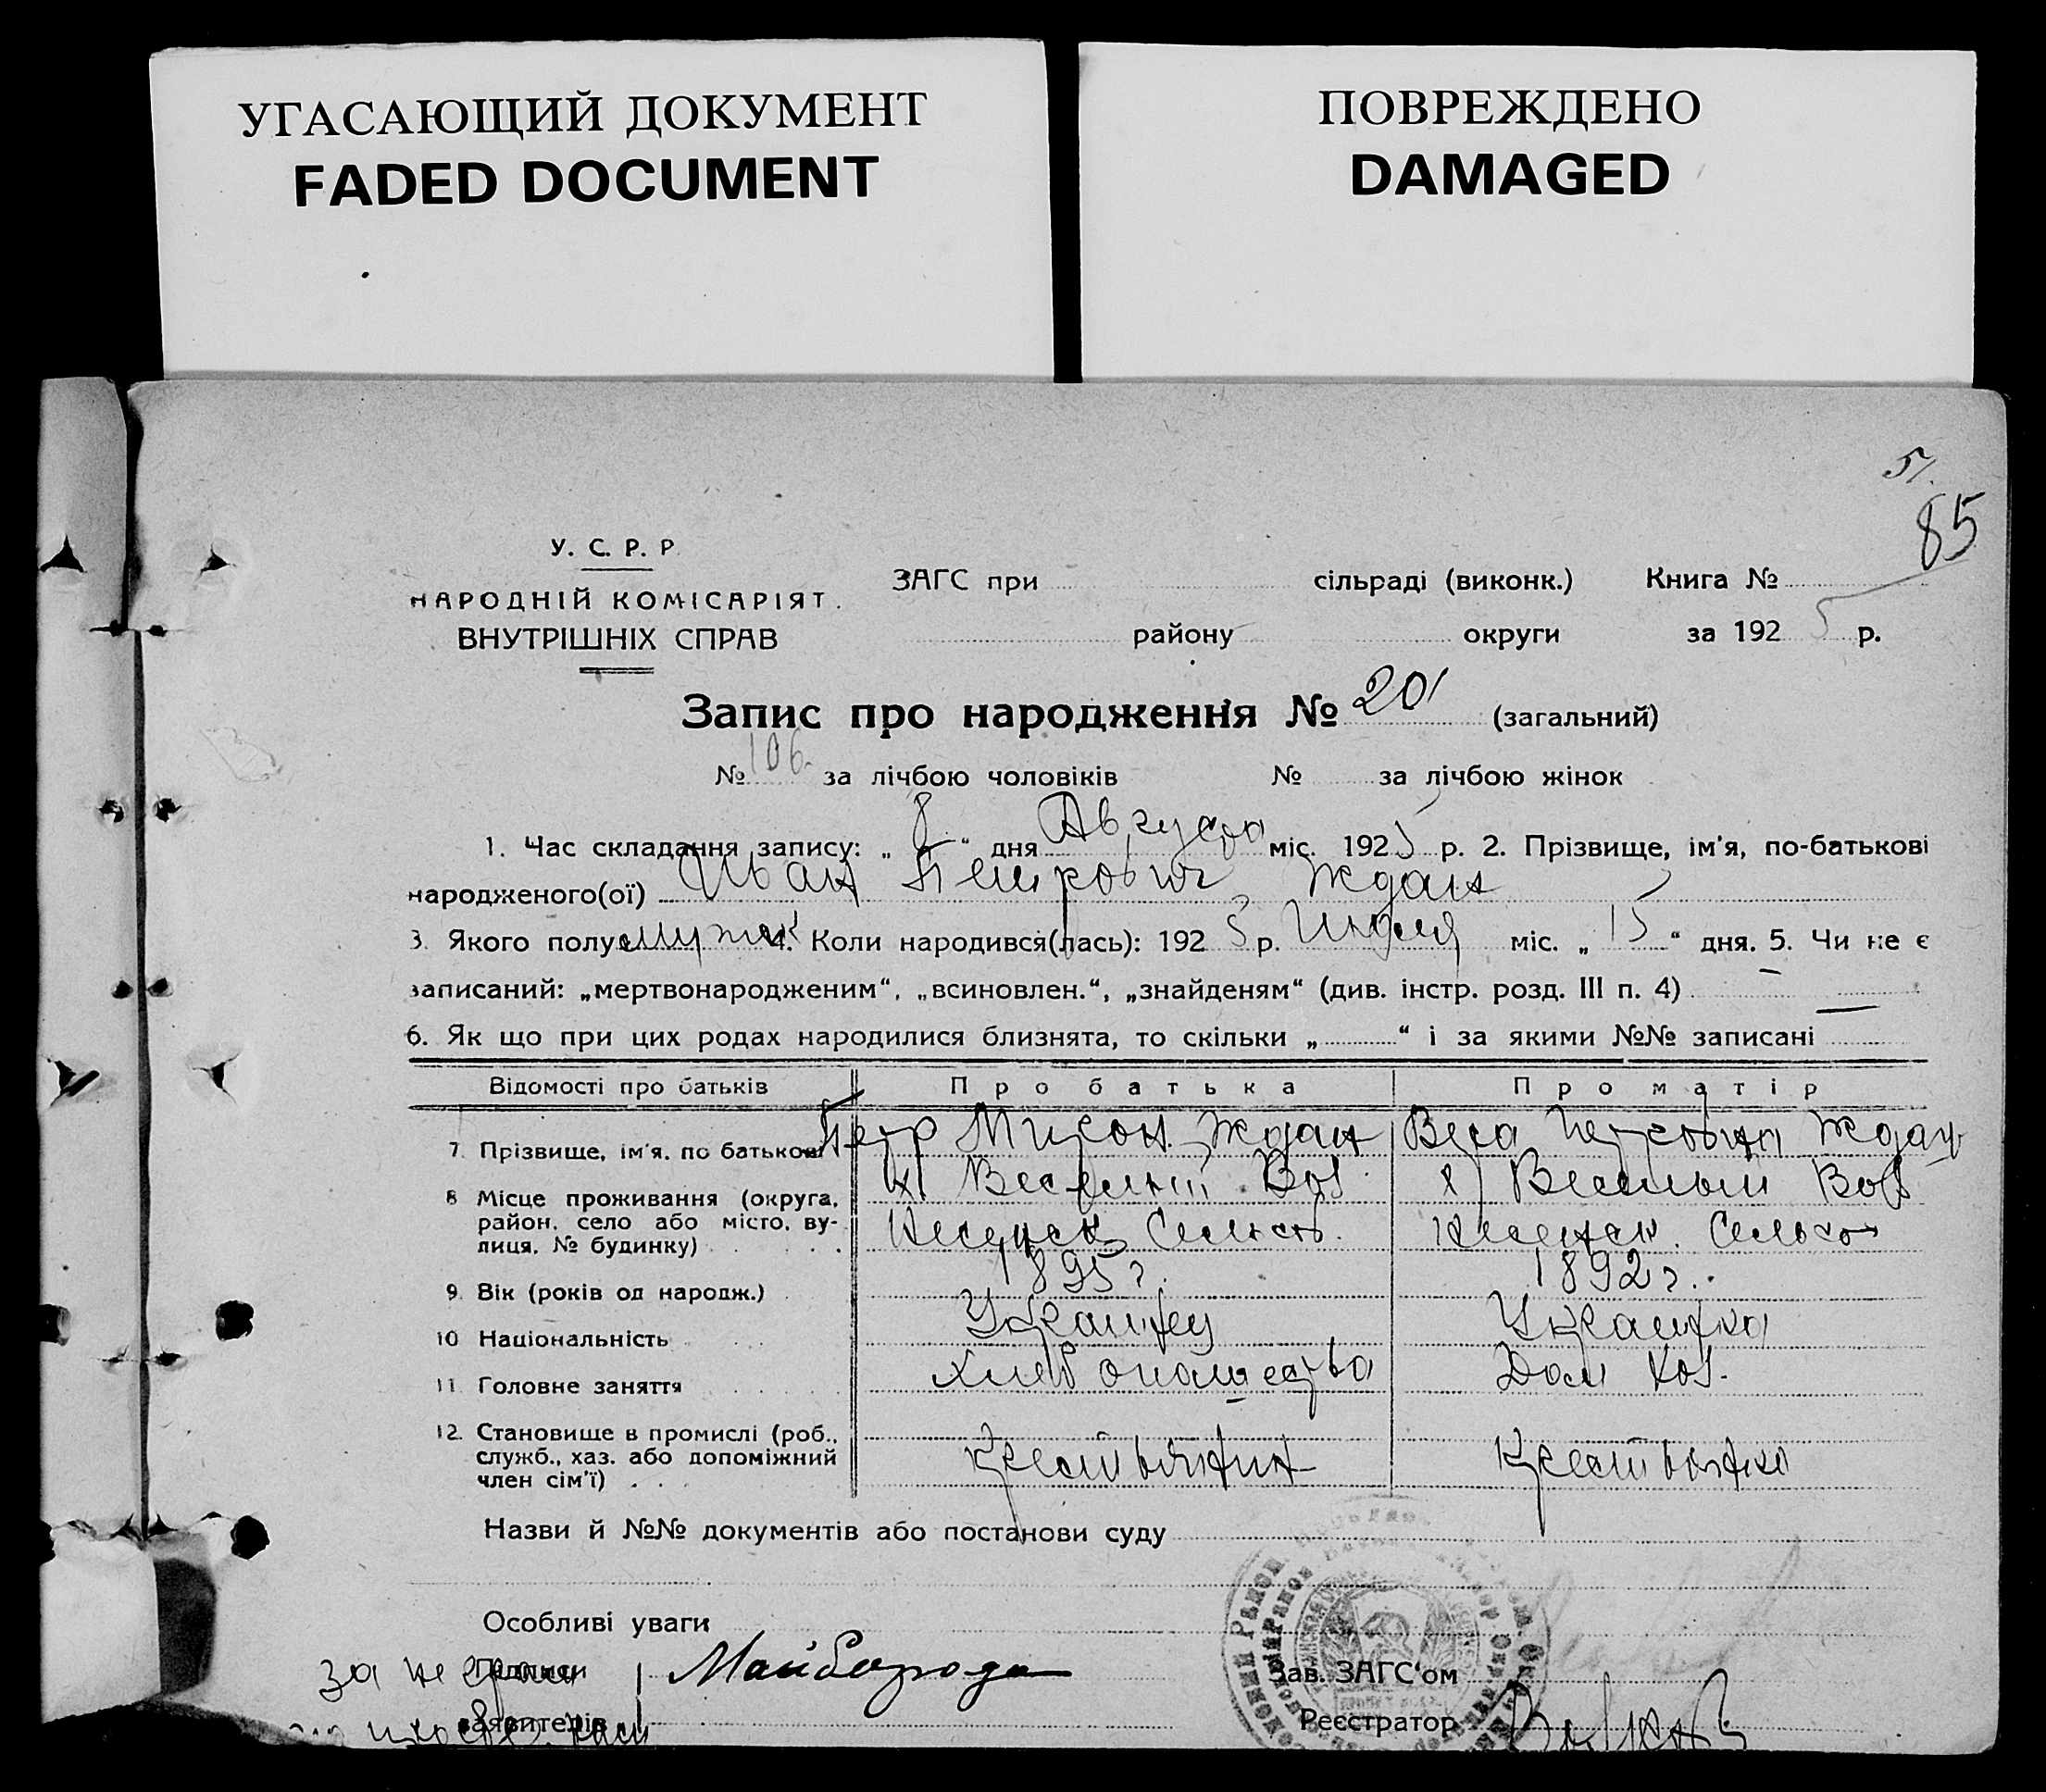 УГАСАЮЩИЙ ДОКУМЕНТ
FADED DOCUMENT
ПОВРЕЖДЕНО
DAMAGED
51.
85
У. С. Р. Р.
НАРОДНІЙ КОМІСАРІЯТ
ВНУТРІШНІХ СПРАВ
ЗАГС при сільраді (виконк.) Книга №
району округи за 1925 р.
Запис про народження № 201 (загальний)
№ 106. за лічбою чоловіків № за лічбою жінок
1. Час складання запису: „ 8 “ дня Августа міс. 1925 р. 2. Прізвище, ім'я, по-батькові
народженого(ої) Иван Петрович Ждан
3. Якого полу муж 4. Коли народився(лась): 1925 р. Июля міс. „ 15 “ дня. 5. Чи не є
записаний: „мертвонародженим“, „всиновлен.“, „знайденям“ (див. інстр. розд. III п. 4) —
6. Як що при цих родах народилися близнята, то скільки „ “ і за якими №№ записані
Відомості про батьків Про батька Про матір
7. Прізвище, ім'я, по батькові Петр Ждан Вера Петровна Ждан
8 Місце проживання (округа,
район, село або місто, ву-
лиця, № будинку)
х) Веселый х) Веселый
Сельсов. Сельсов
9. Вік (років од народж.) 1895 г. 1892 г.
10 Національність Украинец Украинка
11. Головне заняття Хлебопашества Дом хоз.
12. Становище в промислі (роб.,
служб., хаз. або допоміжний
член сім'ї) Крестьянин Крестьянка
Назви й №№ документів або постанови суду
Особливі уваги
за неграм
Підписи Майборода Зав. ЗАГС'ом
заявителів Реєстратор